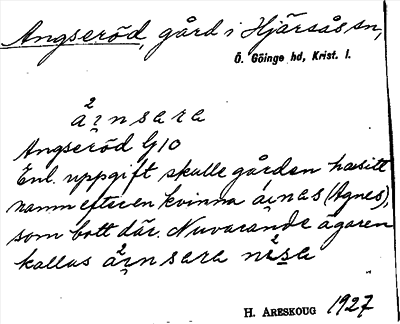 Angseröd, gård i Hjärsås sn,
Ö. Göinge hd, Krist. l.
å²i̯nsara
Angseröd G10
Enl. uppgift skulle gården ha sitt
namn efter en kvinna åi̯nas (Agnes),
som bott där. Nuvarande ägaren
kallas å²i̯nsara
H. ARESKOUG 1927